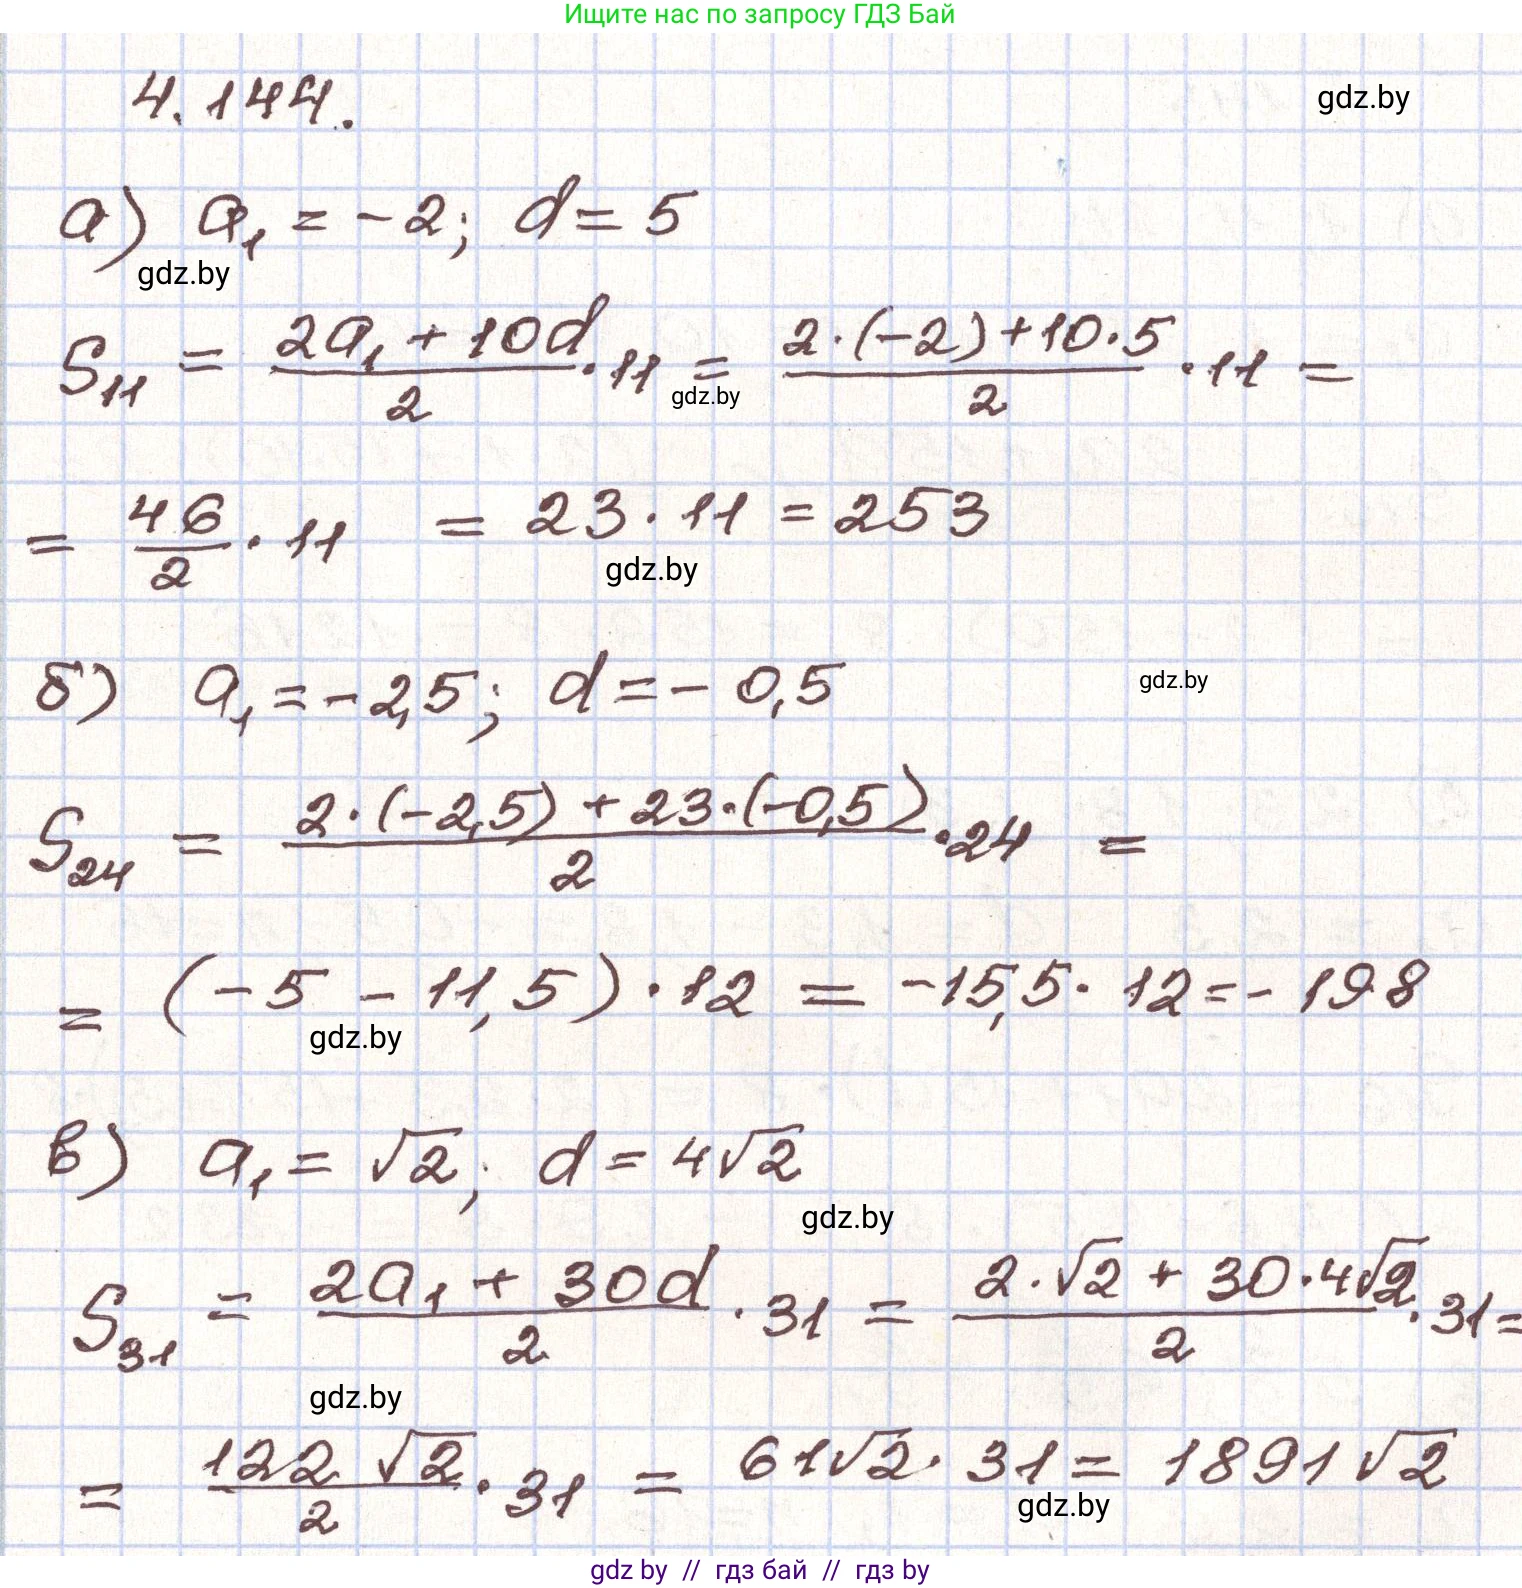 Ищите нас по запросу ГДЗ Бай
4.144.
gdz.by
а) a₁ = -2; d = 5
gdz.by
S₁₁ = (2a₁ + 10d)/2 · 11 = (2·(-2)+10·5)/2 · 11 =
gdz.by
= 46/2 · 11 = 23 · 11 = 253
gdz.by
б) a₁ = -2,5; d = - 0,5
gdz.by
S₂₄ = (2·(-2,5) + 23·(-0,5))/2 · 24 =
= (-5 - 11,5) · 12 = -15,5 · 12 = - 198
gdz.by
в) a₁ = √2; d = 4√2
gdz.by
S₃₁ = (2a₁ + 30d)/2 · 31 = (2·√2 + 30·4√2)/2 · 31 =
gdz.by
= 122√2/2 · 31 = 61√2 · 31 = 1891√2
gdz.by
gdz by // гдз бай // гдз by